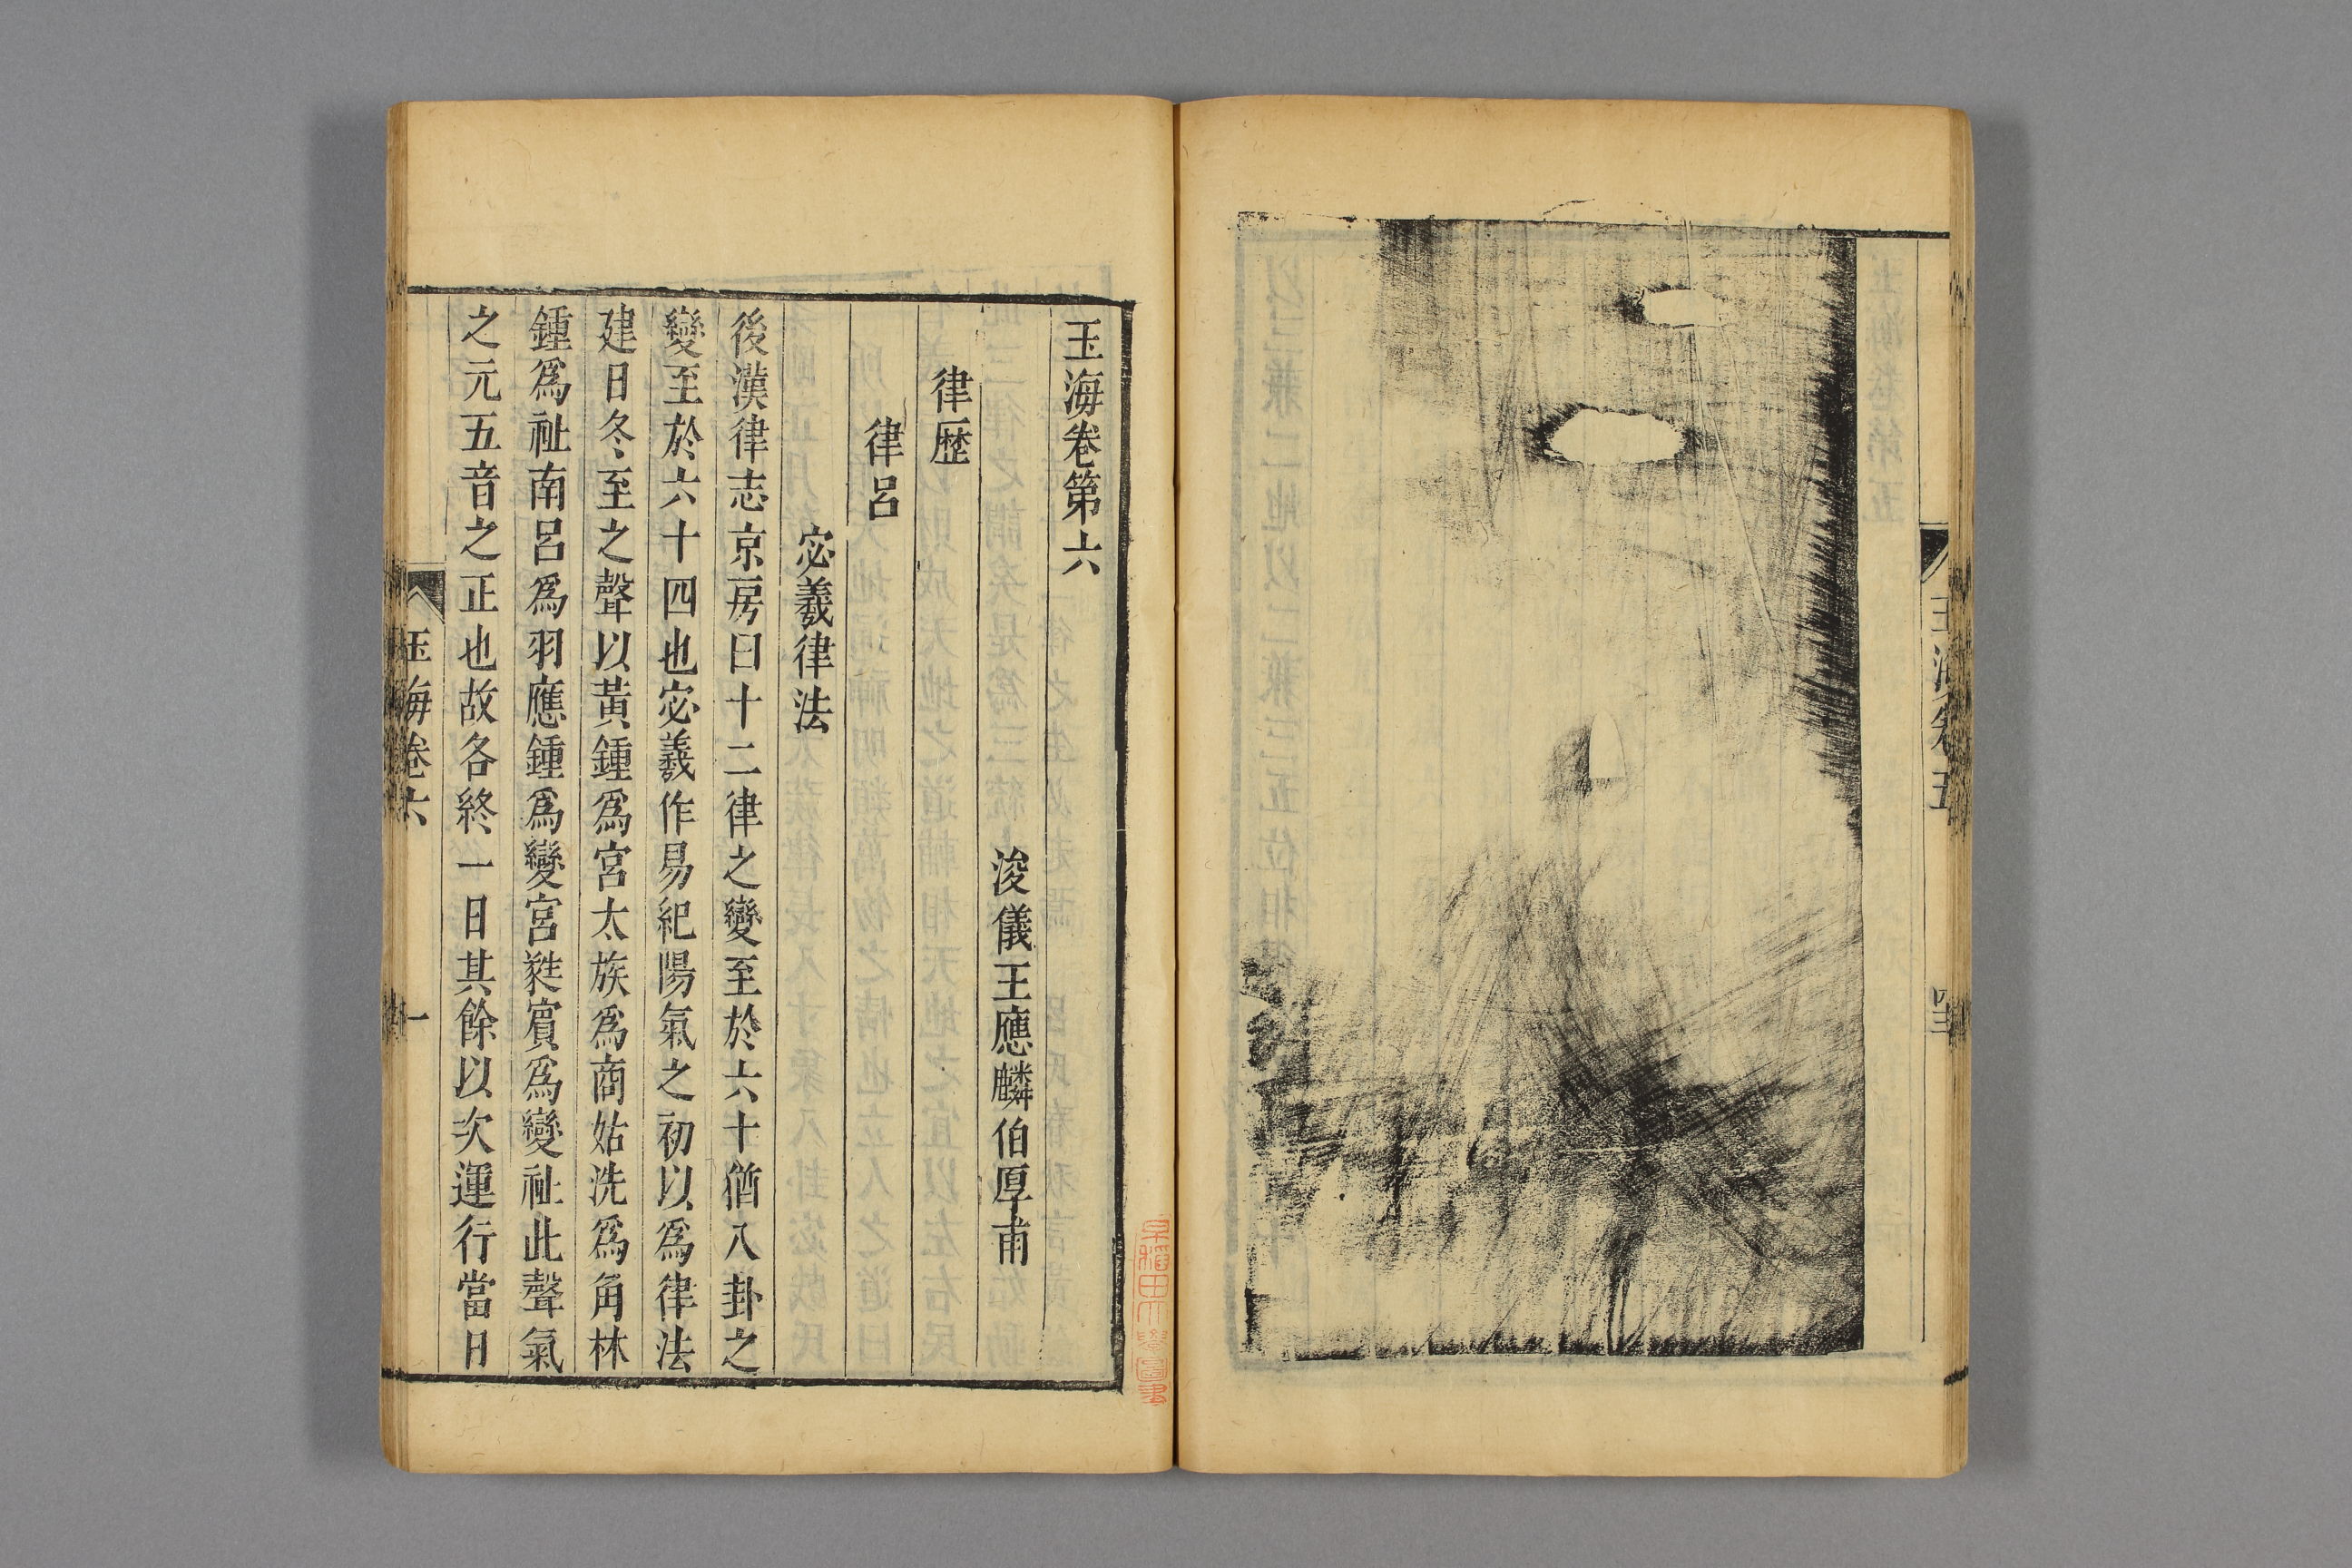 玉海卷五
四十三
玉海卷第六
浚儀王應麟伯厚甫
律歷
律呂
宓羲律法
後漢律志京房曰十二律之變至於六十猶八卦之
變至於六十四也宓羲作易紀陽氣之初以爲律法
建日冬至之聲以黃鍾爲宮太族爲商姑洗爲角林
鍾爲祉南呂爲羽應鍾爲變宮蕤賓爲變祉此聲氣
之元五音之正也故各終一日其餘以次運行當日
玉海卷六
一
早稻田大學圖書